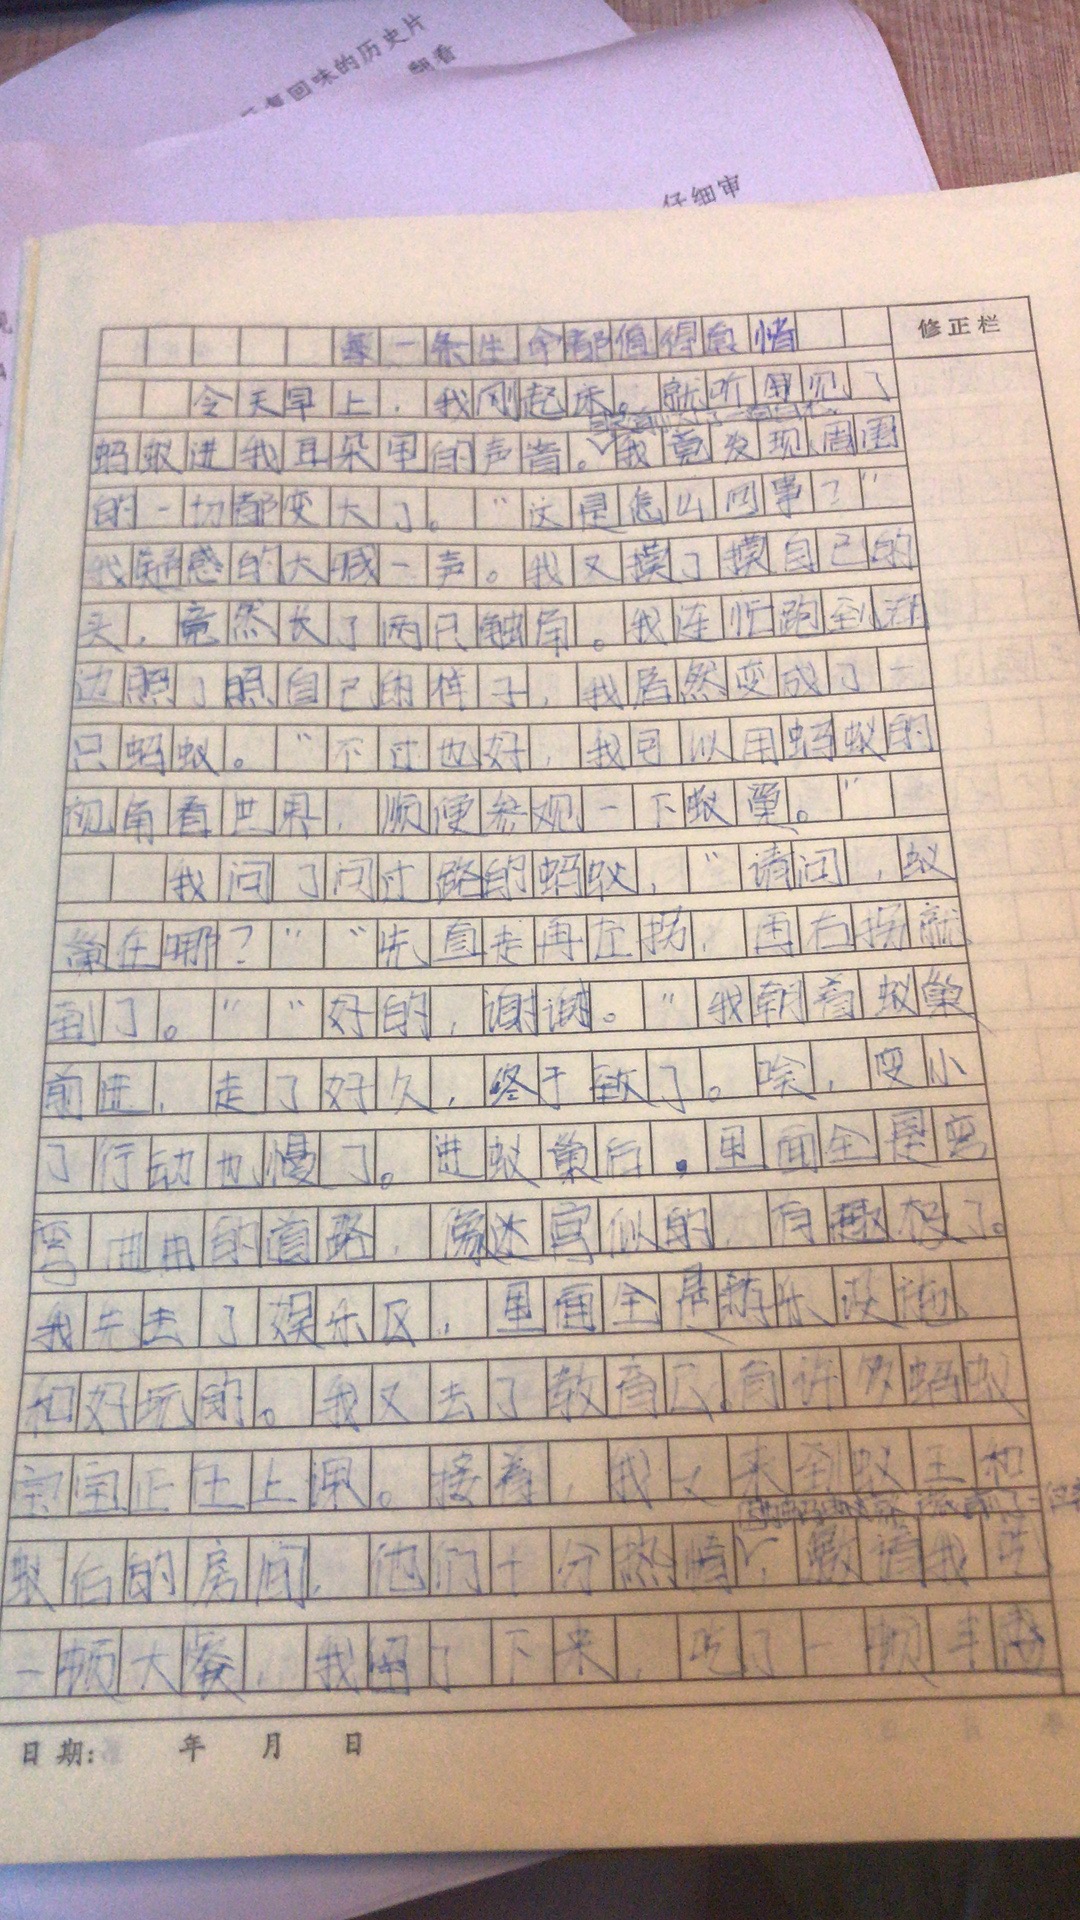 复回味的历史片
翻看
仔细审
修正栏
每一条生命都值得良惜
今天早上,我刚起床。就听见了
蚂蚁进我耳朵里的声音。我竟发现周围
的一切都变大了。“这是怎么回事?”
我疑惑的大喊一声。我又摸了摸自己的
头,竟然长了两只触角。我连忙跑到
边照了照自己的样子,我居然变成了一
只蚂蚁。“不过也好,我可以用蚂蚁的
视角看世界,顺便参观一下蚁巢。”
我问了问过路的蚂蚁,“请问,蚁
巢在哪?”“先直走再左拐,再右拐就
到了。”“好的,谢谢。”我朝着蚁巢
前进,走了好久,终于到了。唉,变小
了行动也慢了。进蚁巢后,里面全是弯
弯曲曲的道路,像迷宫似的,有趣极了。
我先去了娱乐区,里面全是游乐设施
和好玩的。我又去了教育区。有许多蚂蚁
宝宝正在上课。接着,我又来到蚁王和
蚁后的房间,他们十分热情,邀请我吃
一顿大餐,我留了下来,吃了一顿丰
日期: 年 月 日